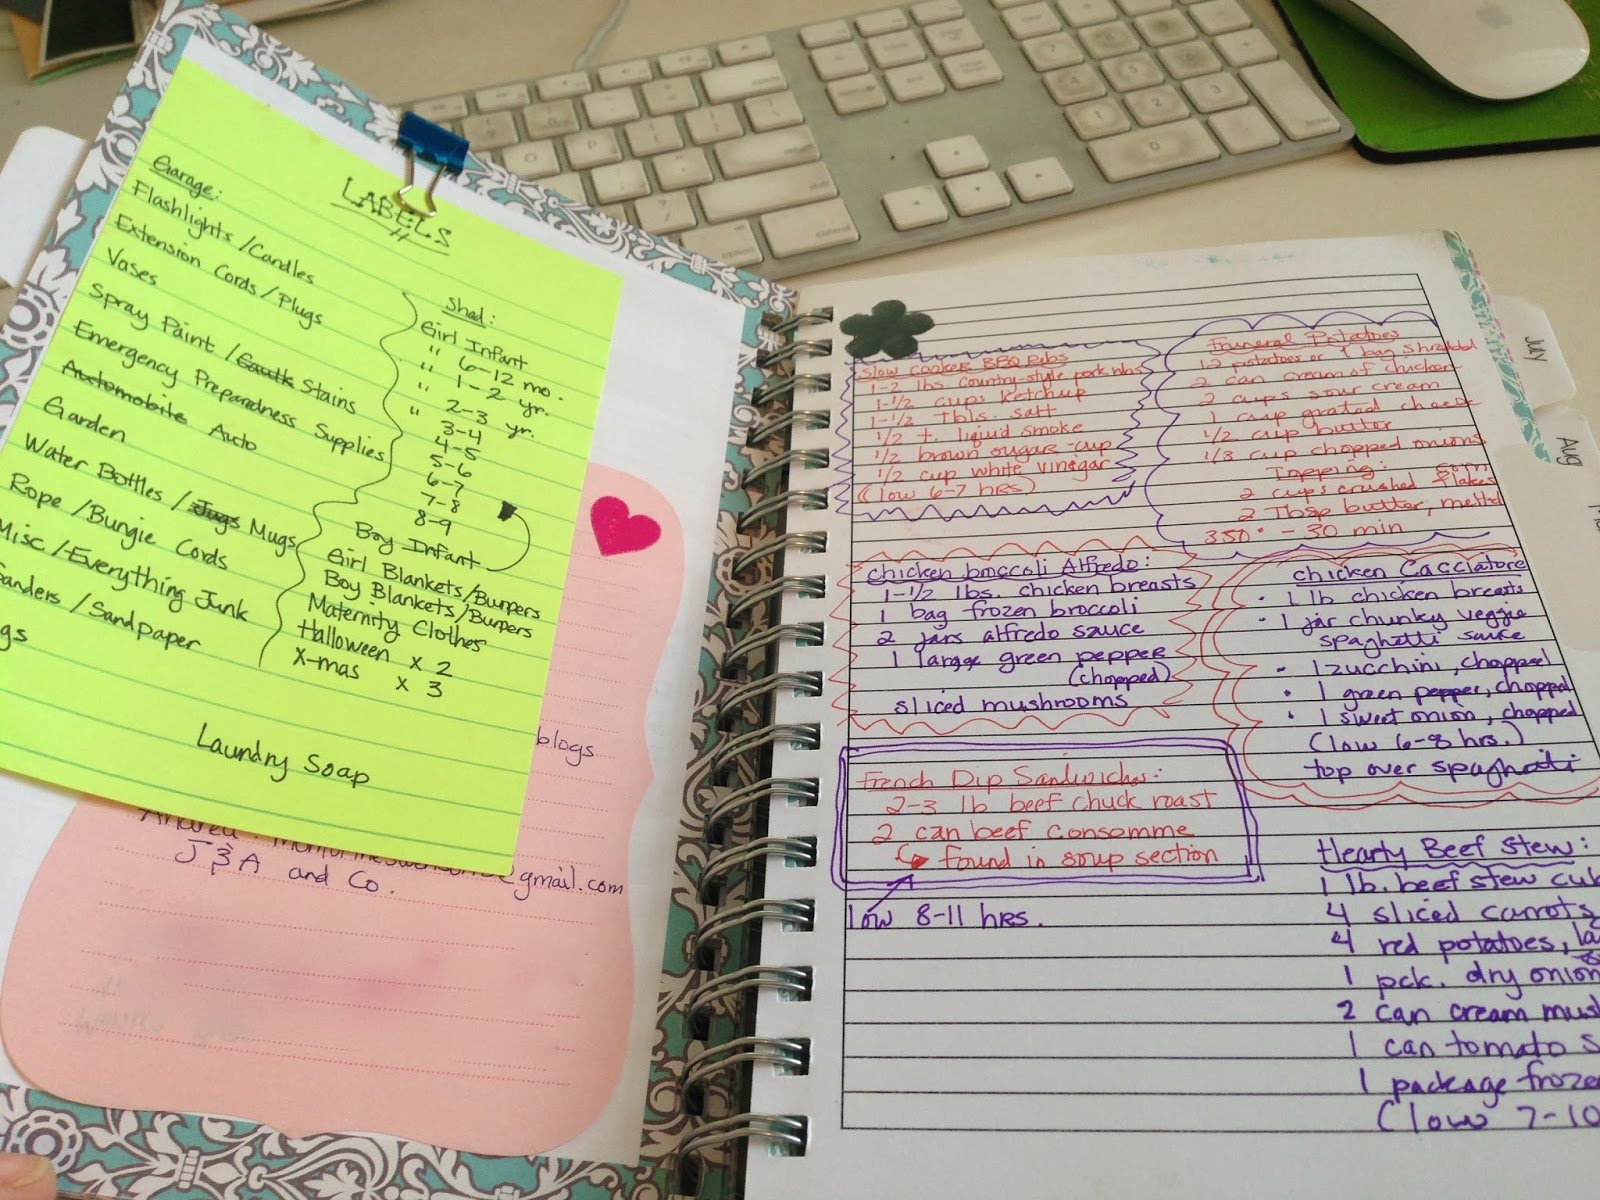 LABELS
Garage:
Flashlights/Candles
Extension Cords/Plugs
Vases
Spray Paint/Caulk Stains
Emergency Preparedness Supplies
Automobile Auto
Garden
Water Bottles/Jugs Mugs
Rope/Bungie Cords
Misc/Everything Junk
Sanders/Sandpaper
gs
Shed:
Girl Infant
" 6-12 mo.
" 1-2 yr.
" 2-3 yr.
3-4
4-5
5-6
6-7
7-8
8-9
Boy Infant
Girl Blankets/Burpers
Boy Blankets/Burpers
Maternity Clothes
Halloween x 2
X-mas x 3
Laundry Soap
blogs
@gmail.com
J & A and Co.
Slow Cooker BBQ Ribs
1-2 lbs. country-style pork ribs
1-1/2 cups ketchup
1-1/2 tbls. salt
1/2 t. liquid smoke
1/2 brown sugar-cup
1/2 cup white vinegar
(low 6-7 hrs)
Funeral Potatoes
12 postatoes or 1 bag shredded
2 can cream of chicken
2 cups sour cream
1 cup grated cheese
1/2 cup butter
1/3 cup chopped onions
Topping: corn
2 cups crushed flakes
2 Tbsp butter, melted
350° - 30 min
chicken broccoli Alfredo:
1-1/2 lbs. chicken breasts
1 bag frozen broccoli
2 jars alfredo sauce
1 large green pepper
(chopped)
sliced mushrooms
Chicken Cacciatore
• 1 lb chicken breasts
• 1 jar chunky veggie
spaghetti sauce
• 1 zucchini, chopped
• 1 green pepper, chopped
• 1 sweet onion, chopped
(low 6-8 hrs.)
top over spaghati
French Dip Sandwiches:
2-3 lb beef chuck roast
2 can beef consomme
found in soup section
low 8-11 hrs.
Hearty Beef Stew:
1 lb. beef stew cub
4 sliced carrots
4 red potatoes, la
1 pck. dry onion
2 can cream mus
1 can tomato s
1 package froze
(low 7-10
JUN
Aug
option
control
return
delete
0
1
2
3